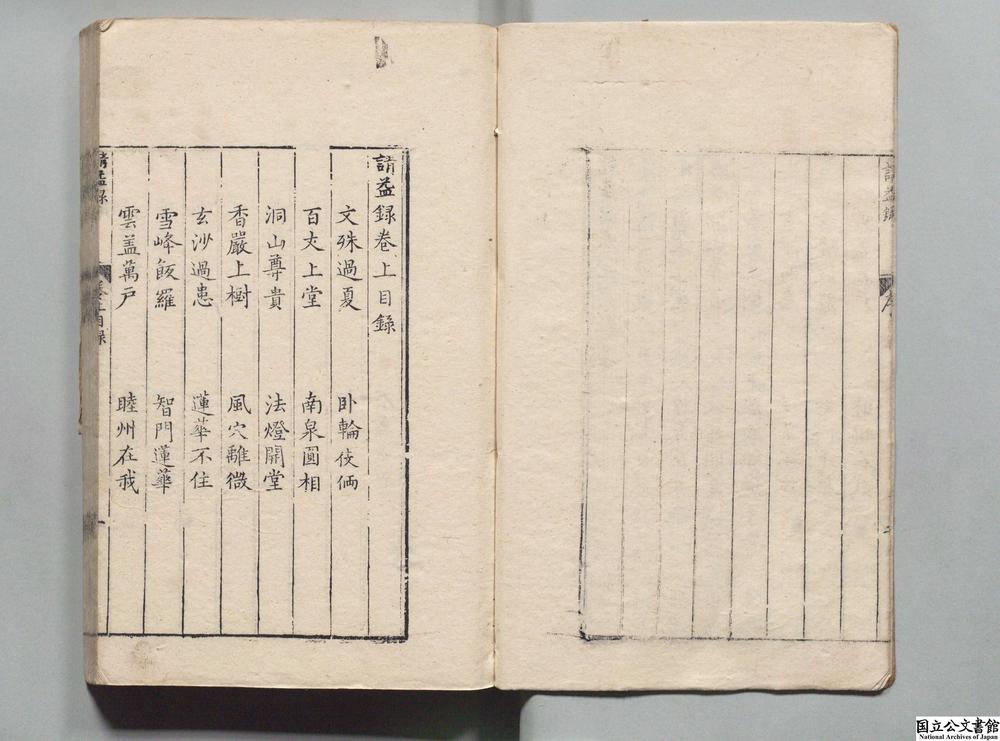 請益録
請益録卷上目録
文殊過夏 卧輪伎倆
百丈上堂 南泉圓相
洞山尊貴 法燈開堂
香嚴上樹 風穴離微
玄沙過患 蓮華不住
雪峰飯羅 智門蓮華
雲盖萬戸 睦州在我
請益録 卷上目録 一
国立公文書館
National Archives of Japan